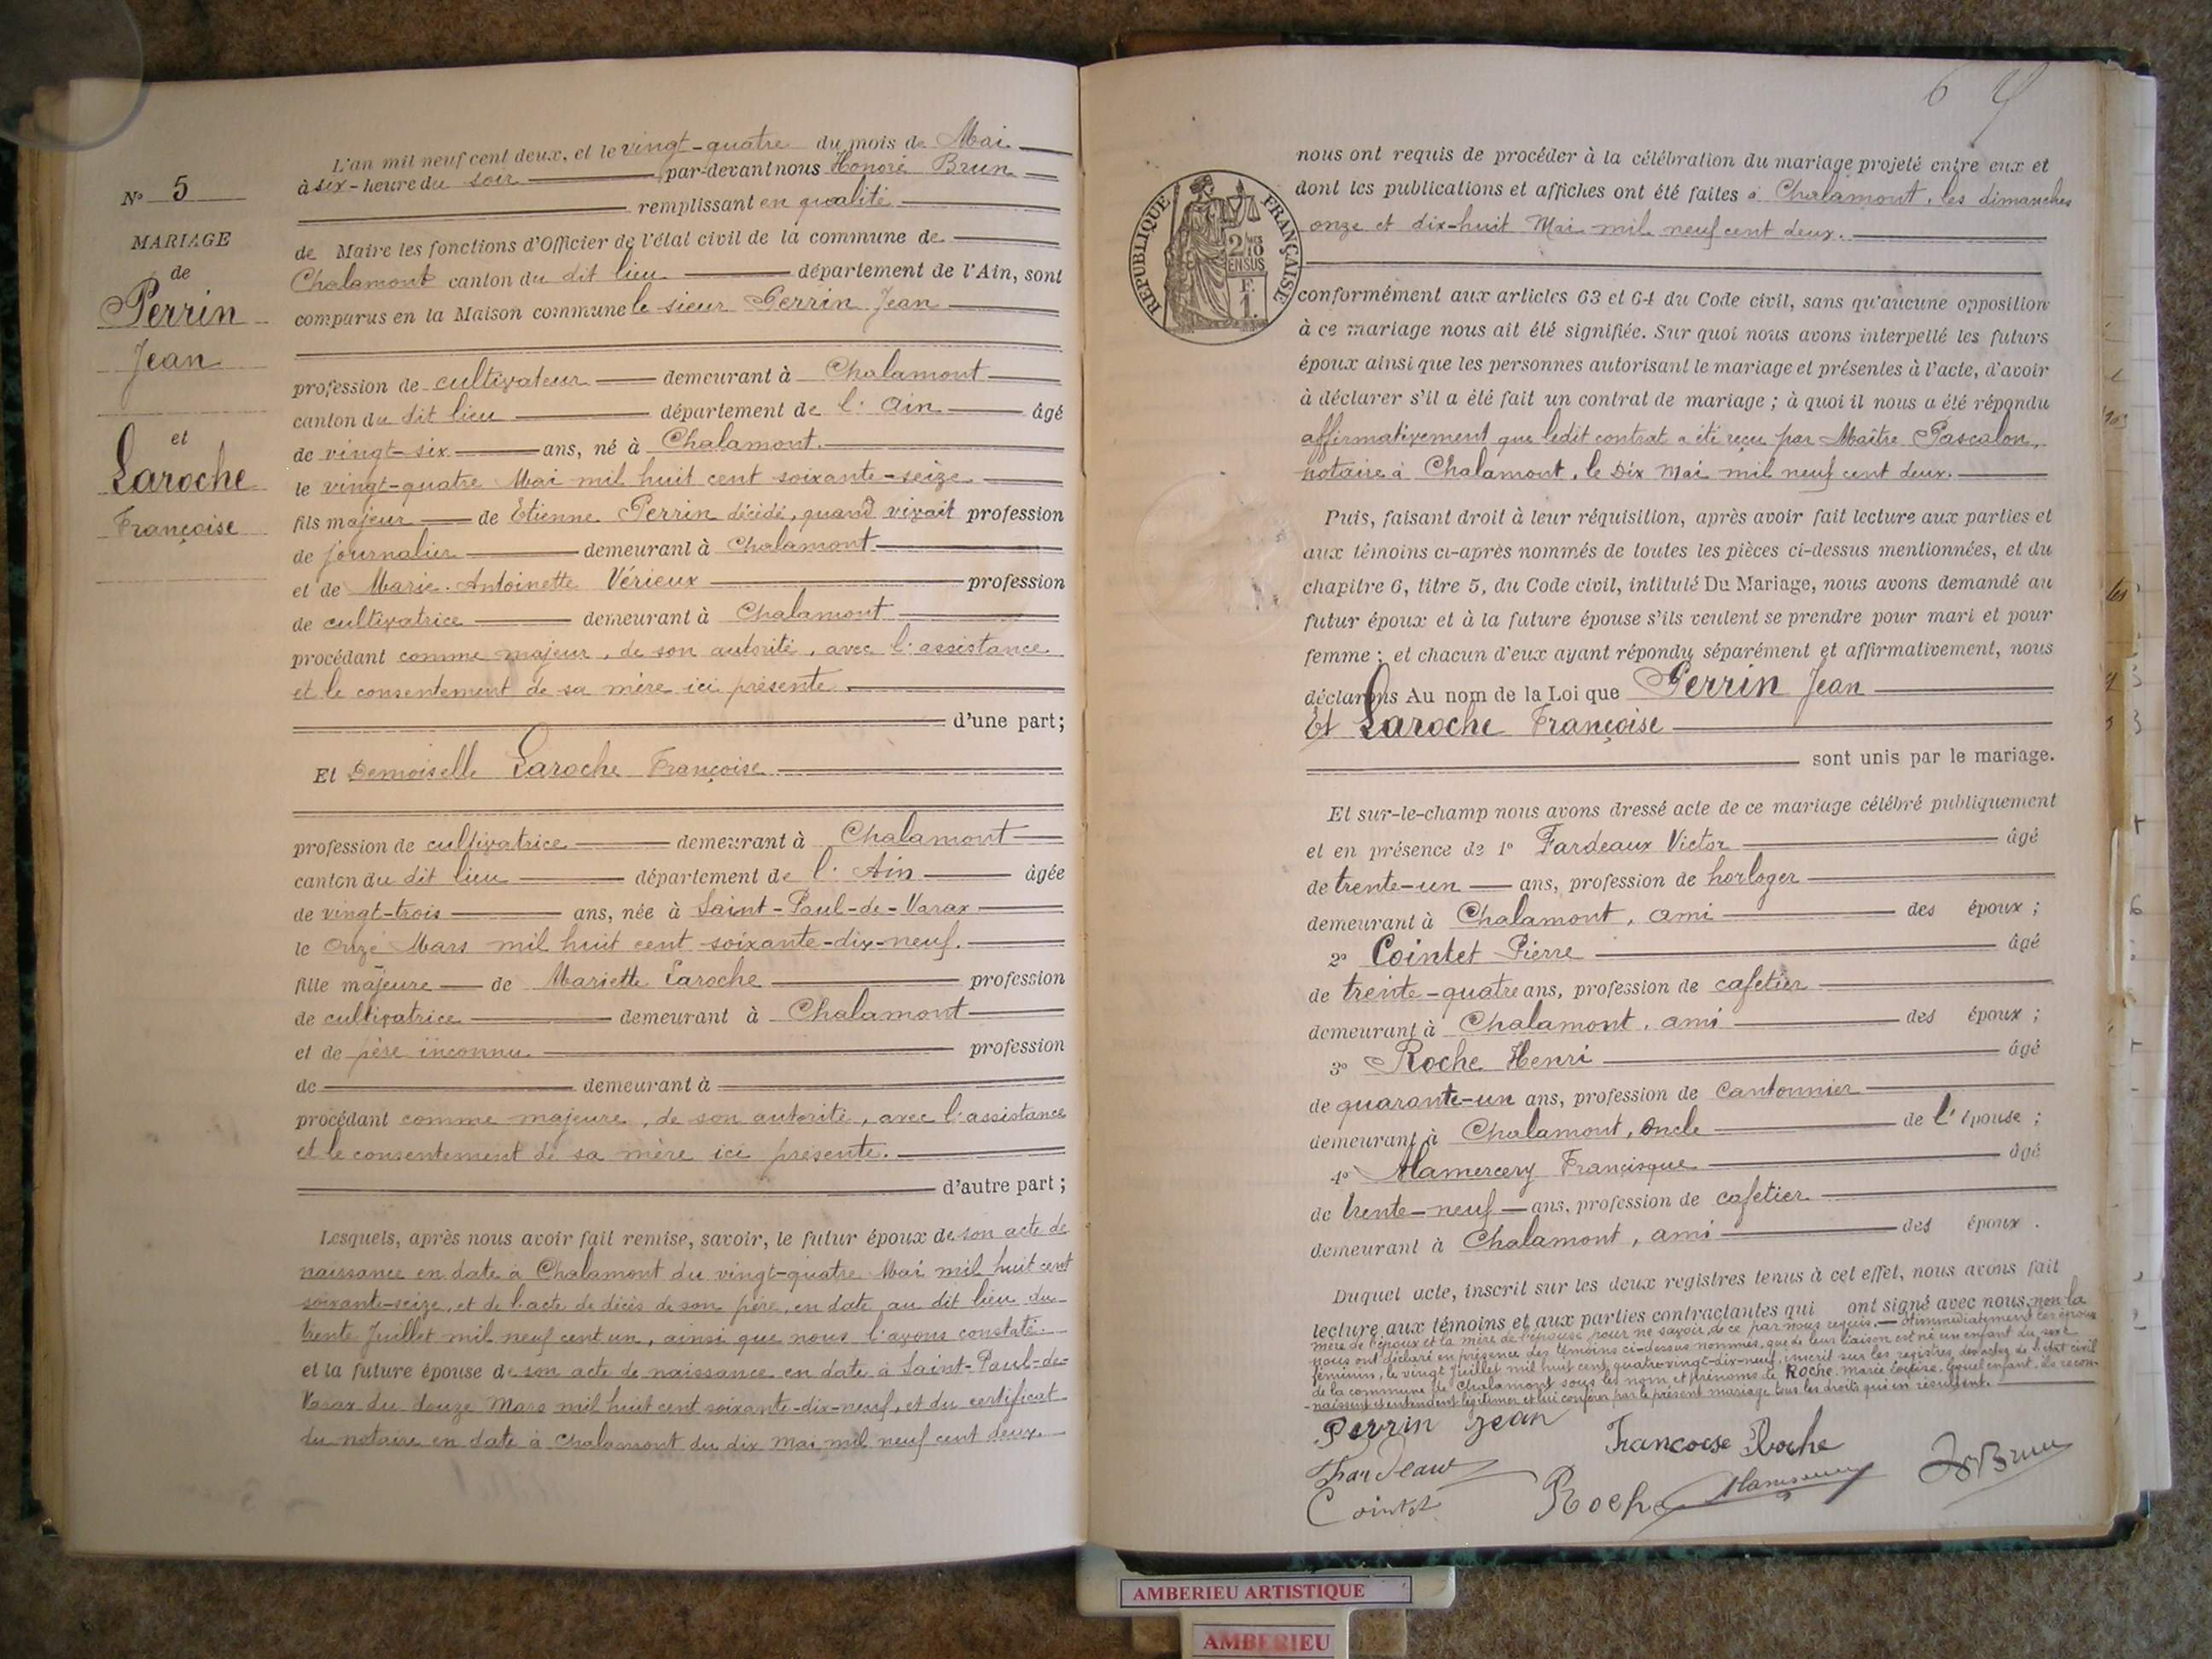 L'an mil neuf cent deux, et le vingt-quatre du mois de Mai
à six heure du soir par-devant nous Honoré Brun
remplissant en qualité
de Maire les fonctions d'Officier de l'état civil de la commune de
Chalamont canton du dit lieu département de l'Ain, sont
comparus en la Maison commune le sieur Perrin Jean
profession de cultivateur demeurant à Chalamont
canton du dit lieu département de l'Ain âgé
de vingt-six ans, né à Chalamont.
le vingt-quatre Mai mil huit cent soixante-seize
fils majeur de Etienne Perrin décidé, quand vivait profession
de journalier demeurant à Chalamont
et de Marie-Antoinette Vérieux profession
de cultivatrice demeurant à Chalamont
procédant comme majeur, de son autorité, avec l'assistance
et le consentement de sa mère ici présente.
d'une part;
Et Demoiselle Laroche Françoise
profession de cultivatrice demeurant à Chalamont
canton du dit lieu département de l'Ain âgée
de vingt-trois ans, née à Saint-Paul-de-Varax
le onze Mars mil huit cent soixante-dix-neuf.
fille majeure de Mariette Laroche profession
de cultivatrice demeurant à Chalamont
et de père inconnu profession
de demeurant à
procédant comme majeure, de son autorité, avec l'assistance
et le consentement de sa mère ici présente.
d'autre part;
Lesquels, après nous avoir fait remise, savoir, le futur époux de son acte de
naissance en date à Chalamont du vingt-quatre Mai mil huit cent
soixante-seize, et de l'acte de décès de son père, en date au dit lieu du
trente Juillet mil neuf cent un, ainsi que nous l'avons constaté.
et la future épouse de son acte de naissance en date à Saint-Paul-de-
Varax du douze Mars mil huit cent soixante-dix-neuf, et du certificat
du notaire en date à Chalamont du dix Mai mil neuf cent deux.
No 5
MARIAGE
de
Perrin
Jean
et
Laroche
Françoise
6
RÉPUBLIQUE FRANÇAISE
2 10
EN SUS
F.
1.
nous ont requis de procéder à la célébration du mariage projeté entre eux et
dont les publications et affiches ont été faites à Chalamont, les dimanches
onze et dix-huit Mai mil neuf cent deux.
conformément aux articles 63 et 64 du Code civil, sans qu'aucune opposition
à ce mariage nous ait été signifiée. Sur quoi nous avons interpellé les futurs
époux ainsi que les personnes autorisant le mariage et présentes à l'acte, d'avoir
à déclarer s'il a été fait un contrat de mariage; à quoi il nous a été répondu
affirmativement que ledit contrat a été reçu par Maître Pascalon,
notaire à Chalamont, le Dix Mai mil neuf cent deux.
Puis, faisant droit à leur réquisition, après avoir fait lecture aux parties et
aux témoins ci-après nommés de toutes les pièces ci-dessus mentionnées, et du
chapitre 6, titre 5, du Code civil, intitulé Du Mariage, nous avons demandé au
futur époux et à la future épouse s'ils veulent se prendre pour mari et pour
femme; et chacun d'eux ayant répondu séparément et affirmativement, nous
déclarons Au nom de la Loi que Perrin Jean
Et Laroche Françoise
sont unis par le mariage.
Et sur-le-champ nous avons dressé acte de ce mariage célébré publiquement
et en présence de 1o Fardeaux Victor âgé
de trente-un ans, profession de horloger
demeurant à Chalamont, ami des époux;
2o Cointet Pierre âgé
de trente-quatre ans, profession de cafetier
demeurant à Chalamont, ami des époux;
3o Roche Henri âgé
de quarante-un ans, profession de Cantonnier
demeurant à Chalamont, oncle de l'épouse;
4o Mamercery Francisque âgé
de trente-neuf ans, profession de cafetier
demeurant à Chalamont, ami des époux.
Duquel acte, inscrit sur les deux registres tenus à cet effet, nous avons fait
lecture aux témoins et aux parties contractantes qui ont signé avec nous, non la
mère de l'époux et la mère de l'épouse pour ne savoir, de ce par nous requis. Et immédiatement les époux
nous ont déclaré en présence des témoins ci-dessus nommés, que de leur liaison est né un enfant du sexe
féminin, le vingt Juillet mil huit cent quatre-vingt-dix-neuf, inscrit sur les registres des actes de l'état civil
de la commune de Chalamont sous les nom et prénoms de Roche Marie Louise, lequel enfant, ils recon-
naissent et entendent légitimer et lui conférer par le présent mariage tous les droits qui en résultent.
Perrin Jean
Francoise Roche
Fardeaux
Cointet
Roche
Brun
AMBERIEU ARTISTIQUE
AMBERIEU